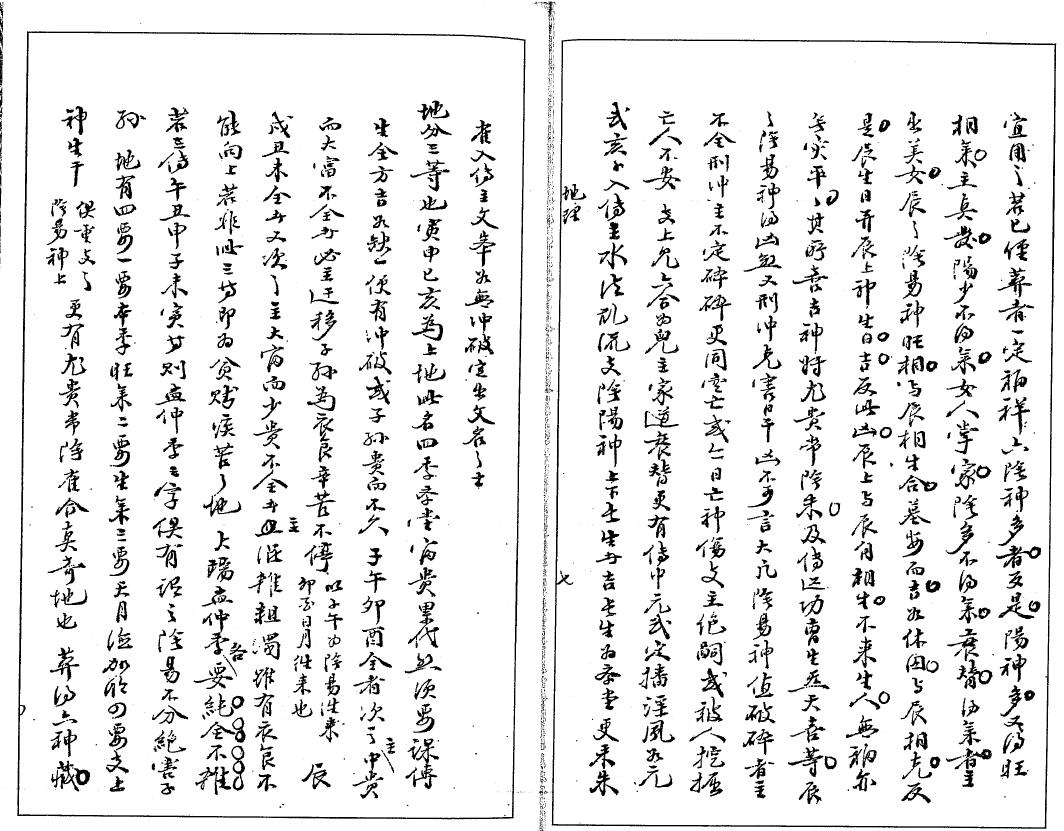 宜用之若已經葬者一定禎祥六陰神多者妄是陽神多又得旺
相氣主真發陽少不得氣女人掌家陰多不得氣衰替得氣者主
出美女辰之陰易神旺相与辰相生合墓安而吉如休囚与辰相克反
是辰生日并辰上神生日吉反此凶辰上与辰自相生不來生人無禍亦
無实平〻其所喜吉神将尤貴常陰朱及傳送功曹生炁天喜等辰
之陰易神得凶煞又刑冲克害日干凶不可言大凡陰易神值破碎者主
不全刑冲主不定破碎更同空亡或亡日亡神傷支主绝嗣或被人挖掘
亡人不安 支上見六合為鬼主家道衰替更有傳中元武定播淫風如元
武亥子入傳主水法乱流支陰陽神上下長生者吉長生為斈堂更来朱
地理
七
雀入傳主文章如無冲破定出文名之士
地分三等也寅申巳亥為上地此名四季斈堂富貴累代然須要課傳
生全方吉如缺一便有冲破或子孫貴而不久 子午卯酉全者次之主中貴
而大富不全者必主迁移子孫為衣食辛苦不停 以子午为陰易往来 卯酉为日月往来也 辰
戌丑未全者又次之主大富而少貴不全者主出混雜粗濁雖有衣食不
能向上若雜此三者即为貧賤疾苦之地 大陽孟仲季要各純全不雜
若三傳午丑申子未寅者則孟仲季三字俱有謂之陰易不分絶害子
孫 地有四要一要本季旺氣二要生氣三要天月德加臨四要支上
神生干 俱重支之陰易神上 更有尤貴常陰雀合真奇地也 葬得六神藏